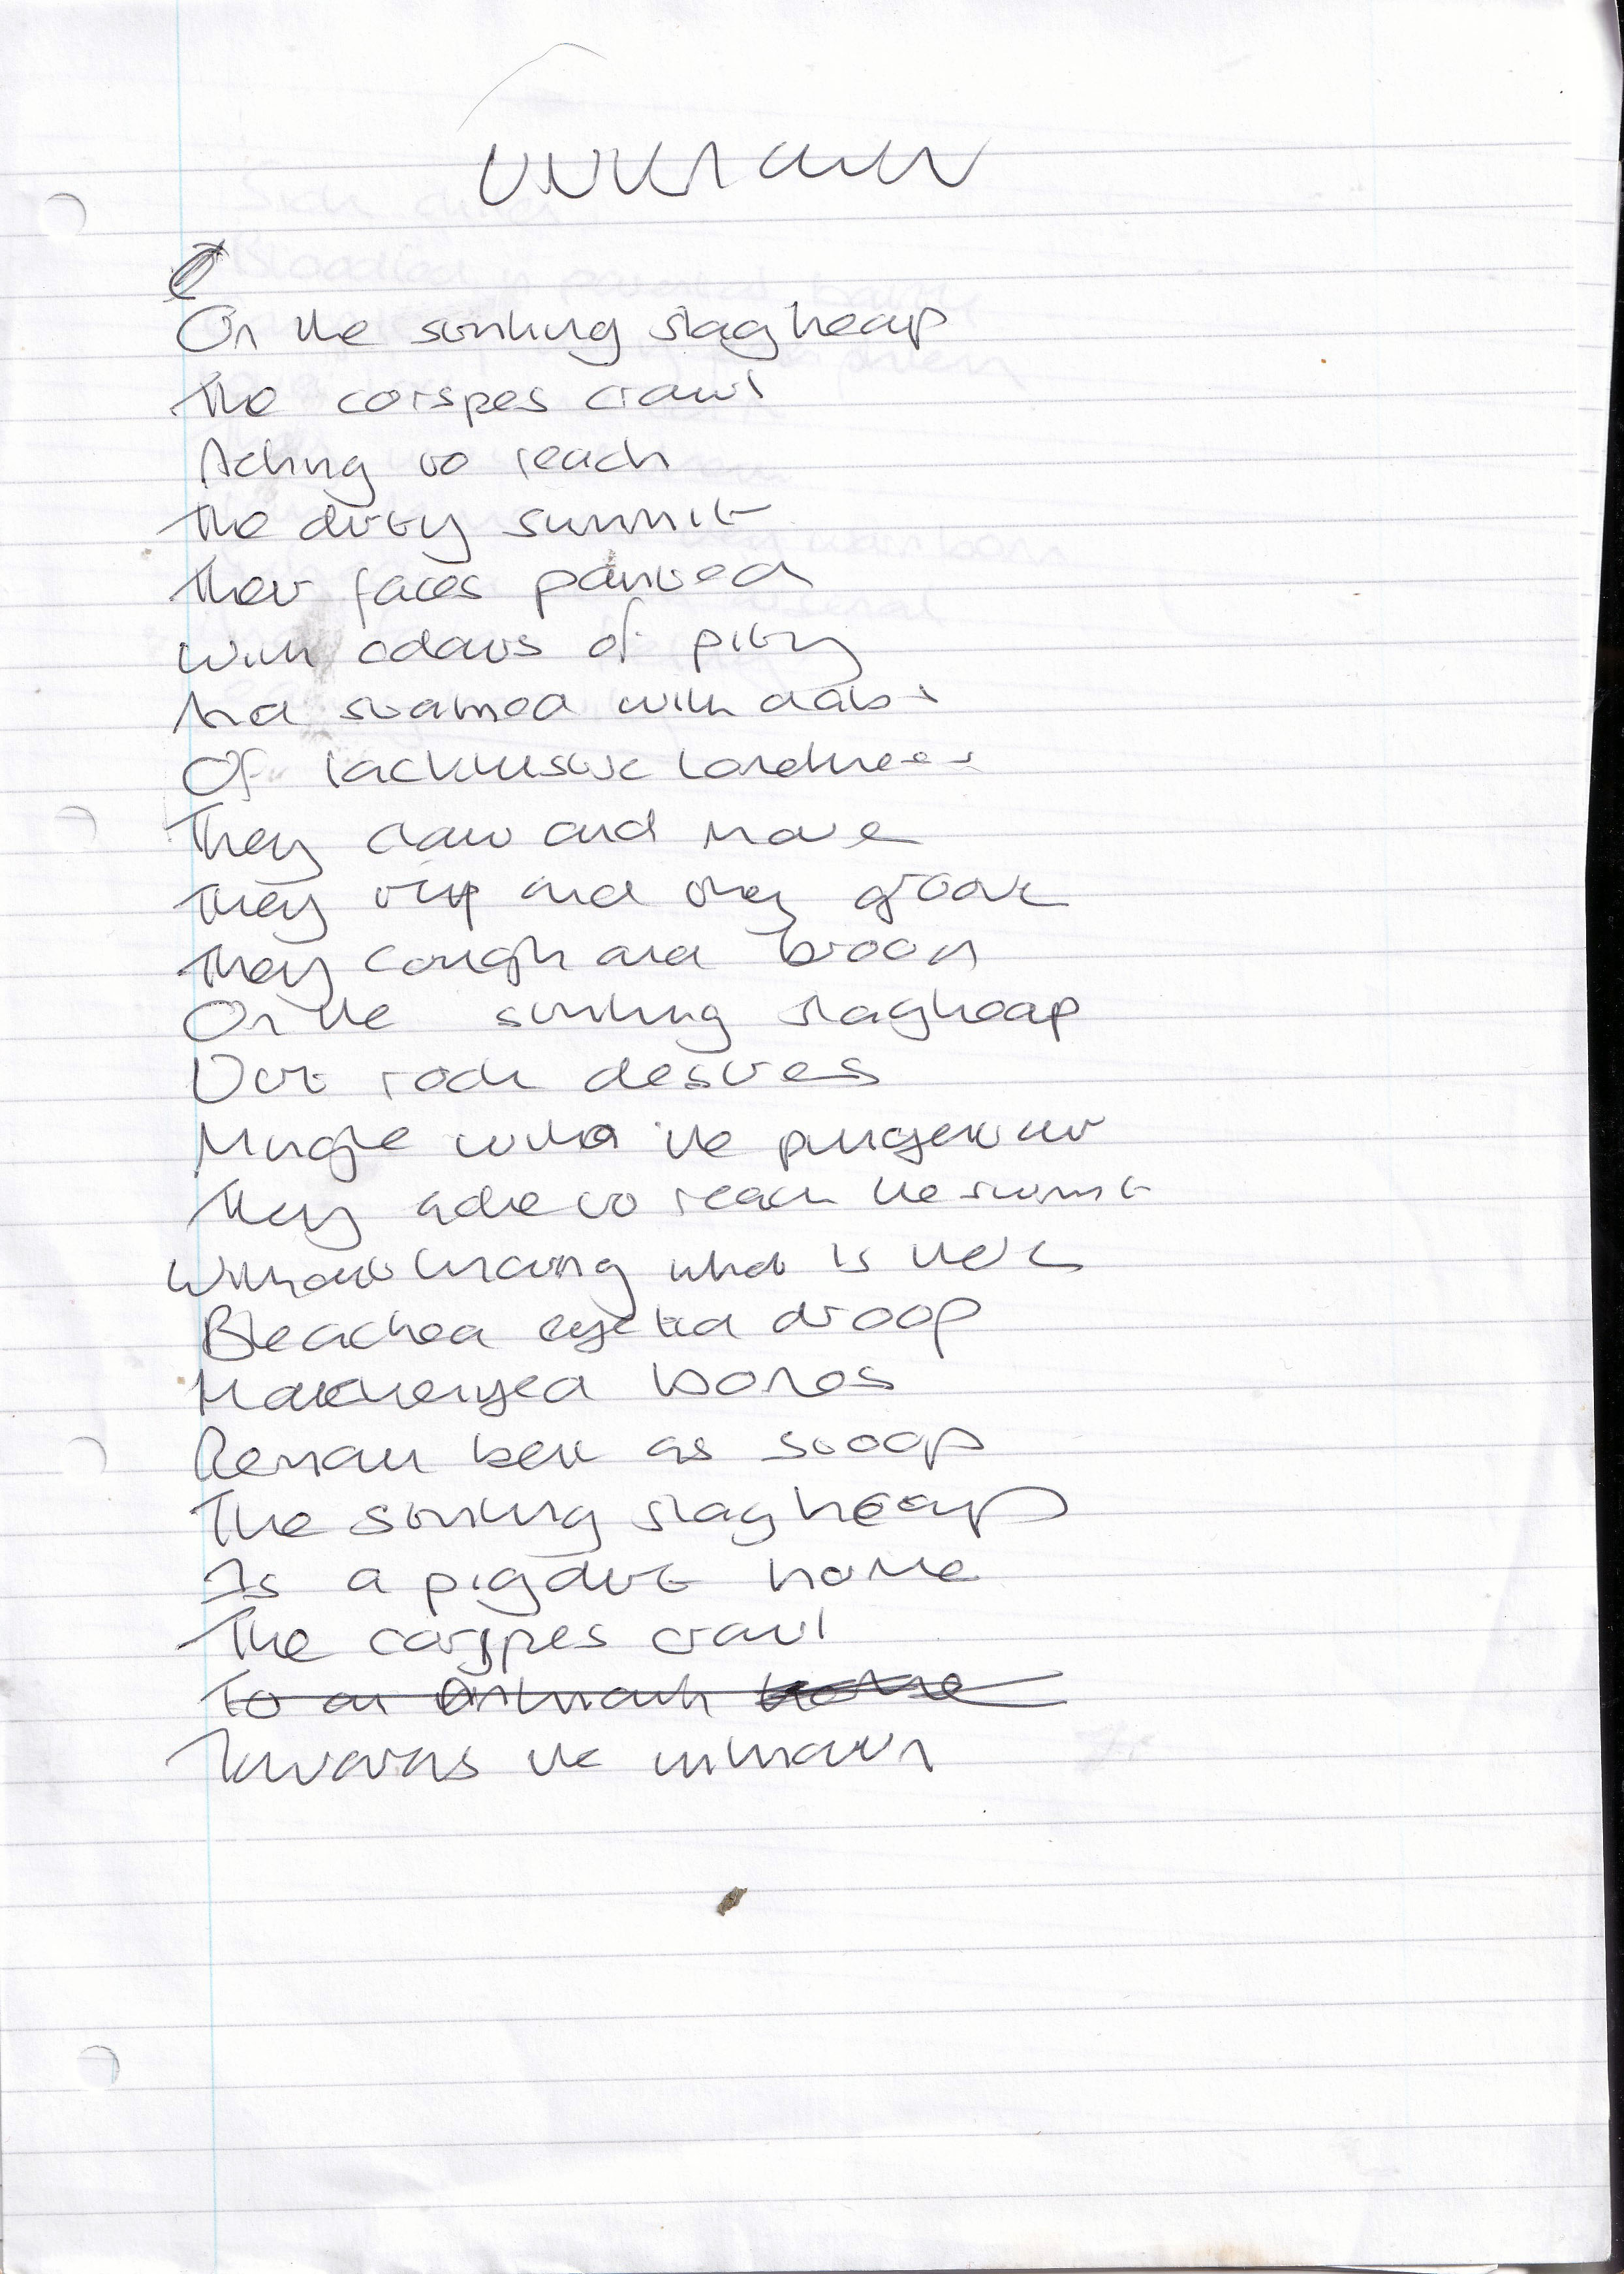 UNKNOWN
On the stinking slag heap
The corspes crawl
Aching to reach
The dirty summit
Their faces painted
With colours of pity
And stained with dabs
Of lacklustre loneliness
They claw and move
They trip and they groove
They cough and broon
On the stinking slagheap
Dirt rock desires
Mingle with the pungent air
They ache to reach the summit
Without knowing what is there
Bleached eyes and droop
Malchenyed bones
Remain bent as stoop
The stinking slag heap
Is a pigdirt home
The corspes crawl
To an unknown home
Towards the unknown